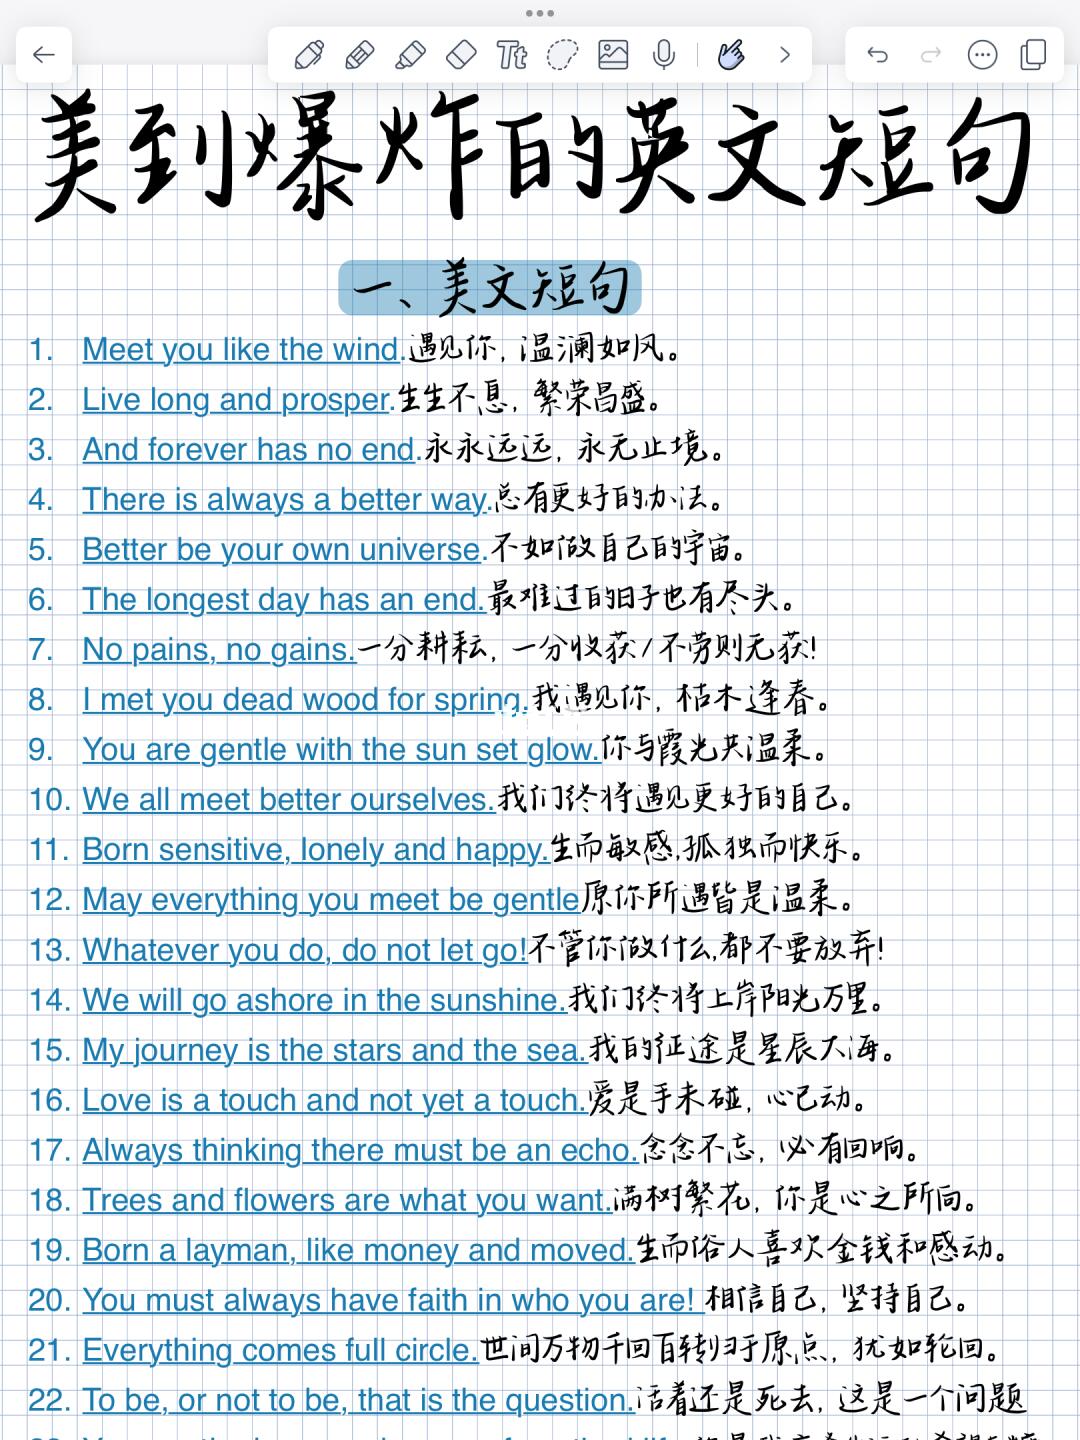 Tt
美到爆炸的英文短句
一、美文短句
1. Meet you like the wind.遇见你, 温澜如风。
2. Live long and prosper.生生不息, 繁荣昌盛。
3. And forever has no end.永永远远, 永无止境。
4. There is always a better way.总有更好的办法。
5. Better be your own universe.不如做自己的宇宙。
6. The longest day has an end.最难过的日子也有尽头。
7. No pains, no gains.一分耕耘, 一分收获/不劳则无获!
8. I met you dead wood for spring.我遇见你, 枯木逢春。
9. You are gentle with the sun set glow.你与霞光共温柔。
10. We all meet better ourselves.我们终将遇见更好的自己。
11. Born sensitive, lonely and happy.生而敏感,孤独而快乐。
12. May everything you meet be gentle原你所遇皆是温柔。
13. Whatever you do, do not let go!不管你做什么,都不要放弃!
14. We will go ashore in the sunshine.我们终将上岸阳光万里。
15. My journey is the stars and the sea.我的征途是星辰大海。
16. Love is a touch and not yet a touch.爱是手未碰, 心已动。
17. Always thinking there must be an echo.念念不忘, 必有回响。
18. Trees and flowers are what you want.满树繁花, 你是心之所向。
19. Born a layman, like money and moved.生而俗人喜欢金钱和感动。
20. You must always have faith in who you are! 相信自己, 坚持自己。
21. Everything comes full circle.世间万物千回百转归于原点, 犹如轮回。
22. To be, or not to be, that is the question.活着还是死去, 这是一个问题